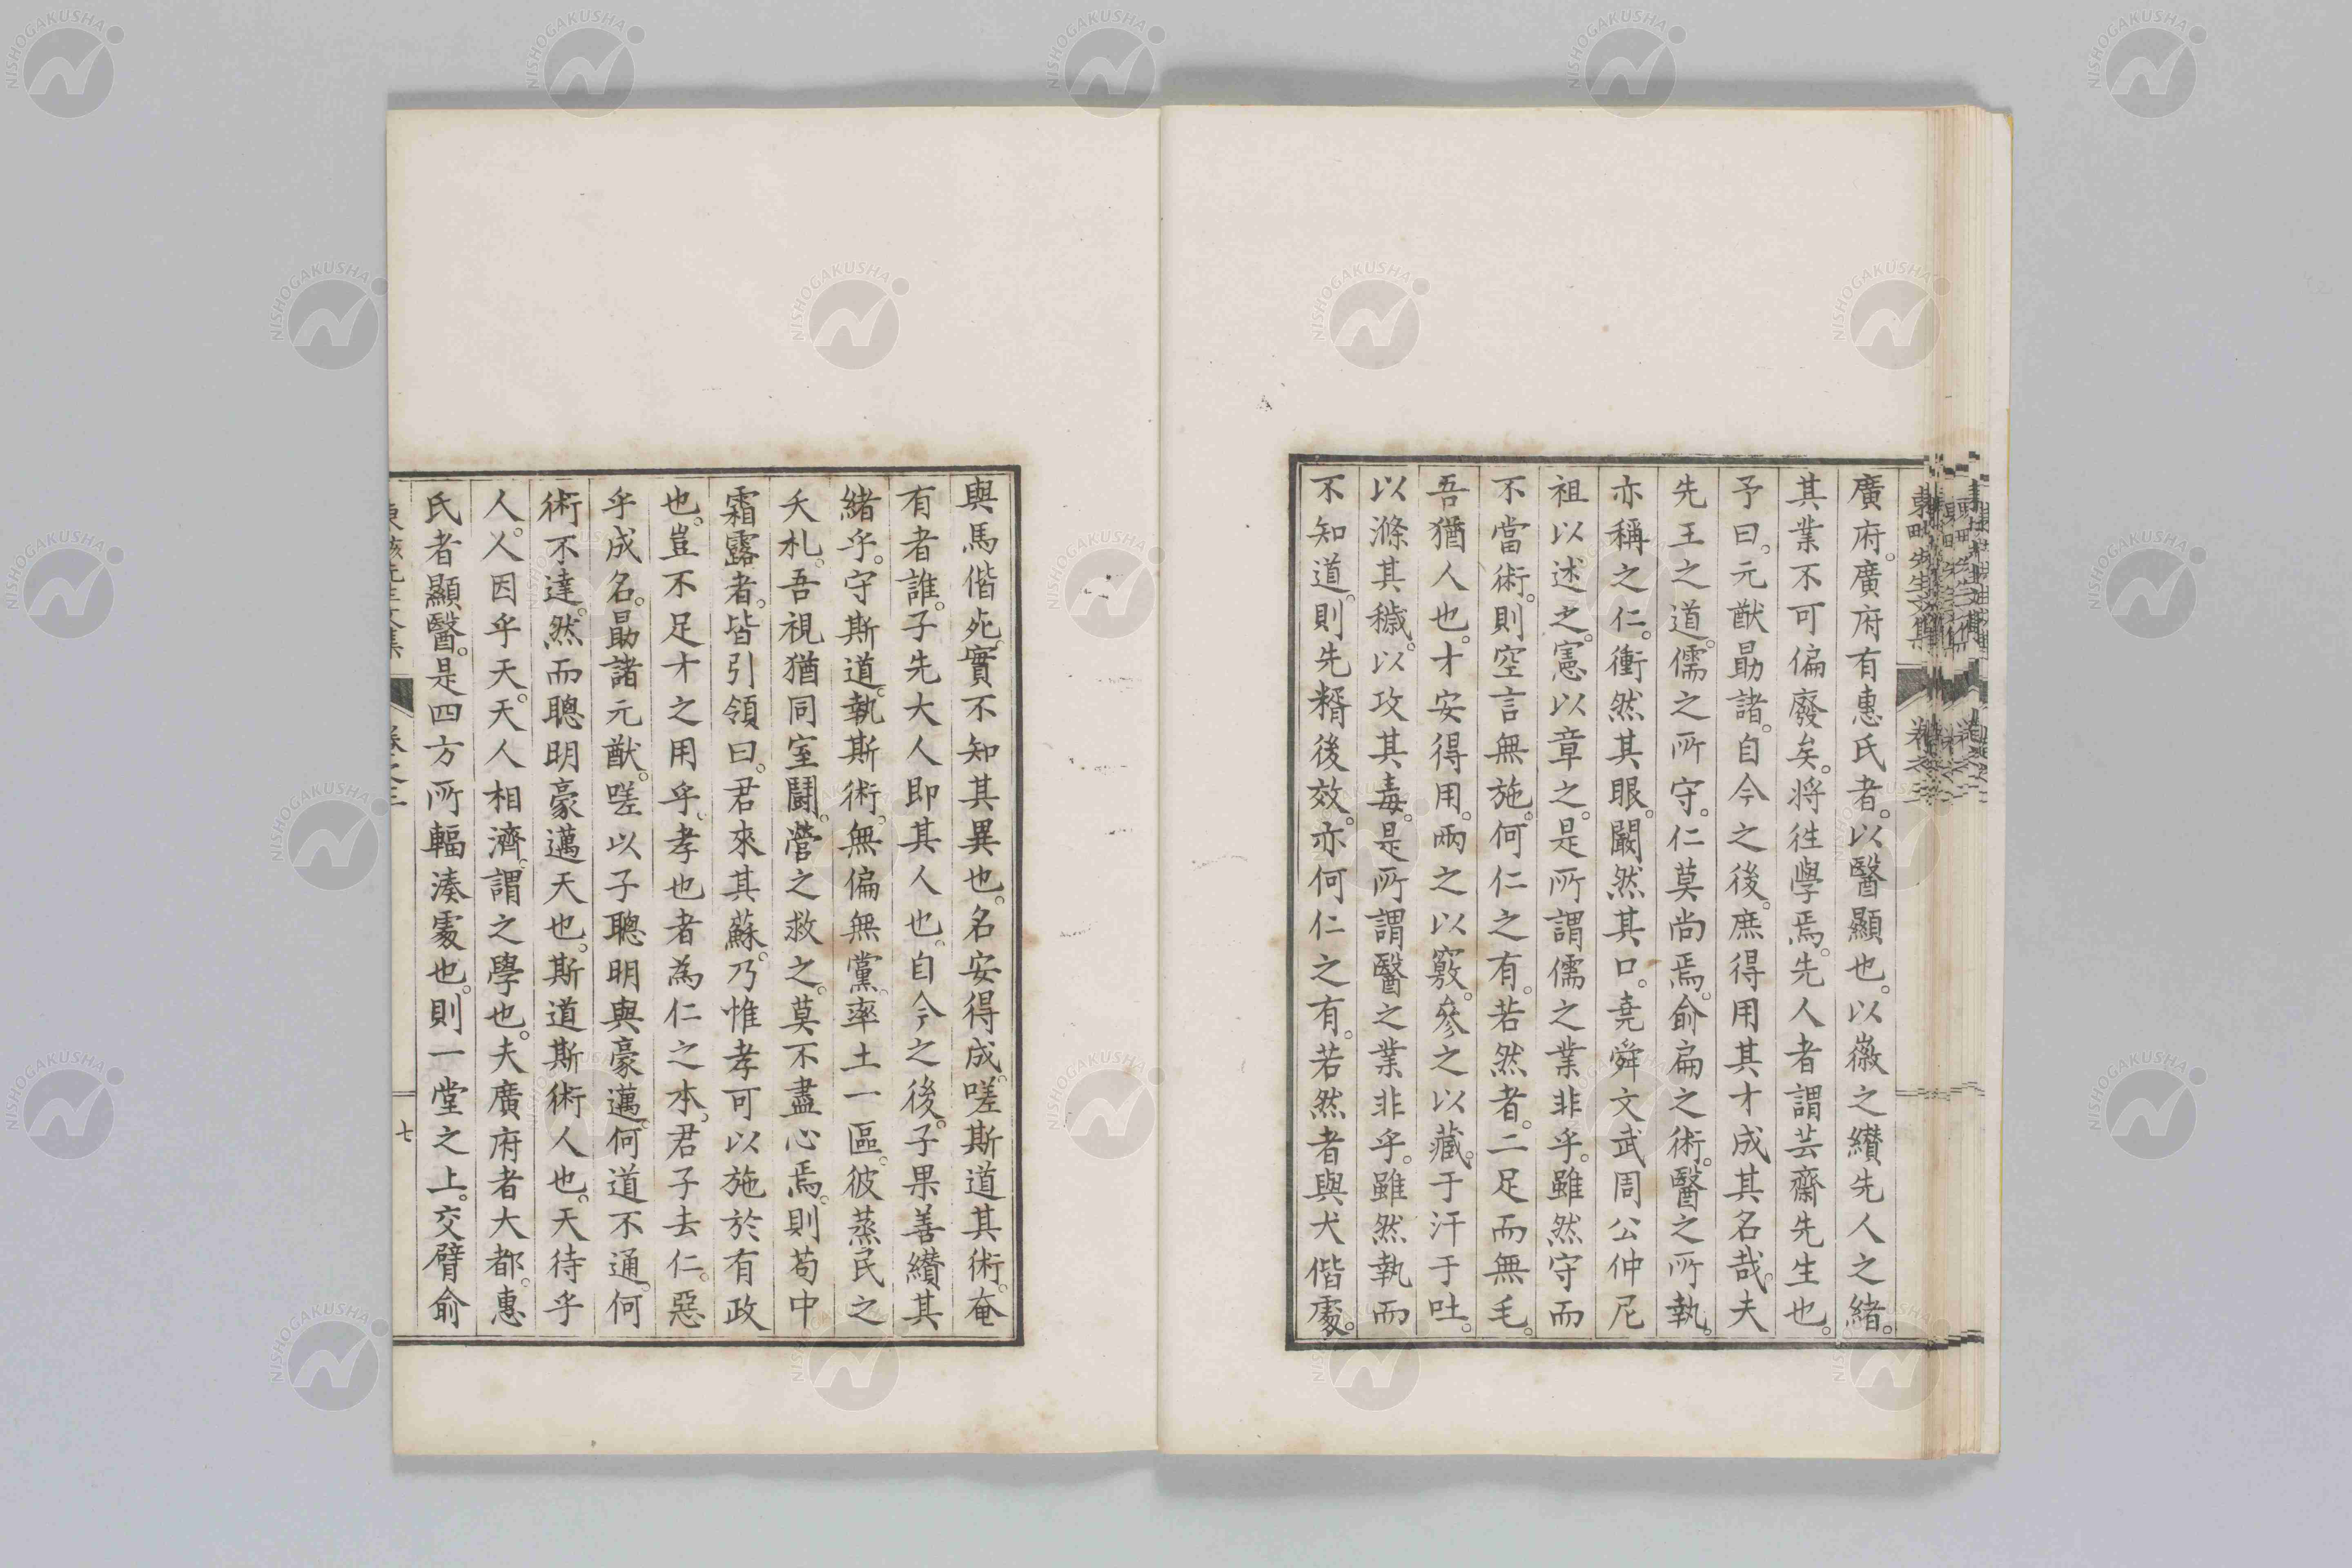 廣府。廣府有惠氏者。以醫顯也。以嶶之纘先人之緒。
其業不可偏廢矣。将徃學焉。先人者謂芸齋先生也。
予曰。元猷勗諸。自今之後。庶得用其才成其名哉。夫
先王之道。儒之所守。仁莫尚焉。俞扁之術。醫之所執。
亦稱之仁。衝然其眼。闞然其口。堯舜文武周公仲尼
祖以述之。憲以章之。是所謂儒之業非乎。雖然守而
不當術。則空言無施。何仁之有。若然者。二足而無毛。
吾猶人也。才安得用。兩之以竅。參之以藏。于汗于吐。
以滌其穢。以攻其毒。是所謂醫之業非乎。雖然執而
不知道。則先糈後效。亦何仁之有。若然者與犬偕處。
與馬偕死。實不知其異也。名安得成。嗟斯道其術。奄
有者誰。子先大人即其人也。自今之後。子果善纘其
緒乎。守斯道。執斯術。無偏無黨。率土一區。彼蒸民之
夭札。吾視猶同室鬪。營之救之。莫不盡心焉。則苟中
霜露者。皆引領曰。君來其蘇。乃惟孝可以施於有政
也。豈不足才之用乎。孝也者為仁之本。君子去仁。惡
乎成名。勗諸元猷。嗟以子聰明與豪邁。何道不通。何
術不達。然而聰明豪邁天也。斯道斯術人也。天待乎
人。人因乎天。天人相濟。謂之學也。夫廣府者大都。惠
氏者顯醫。是四方所輻湊處也。則一堂之上。交臂俞
七
NISHOGAKUSHA